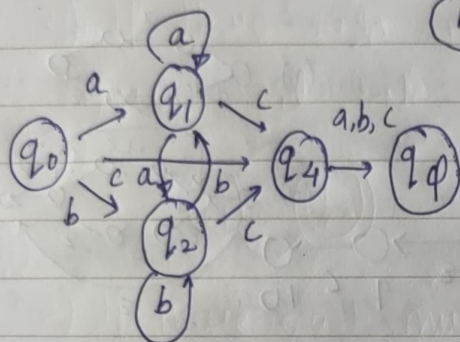 a
q₁
a
c
a, b, c
q₀
c
a
b
q₄
qφ
b
q₂
c
b